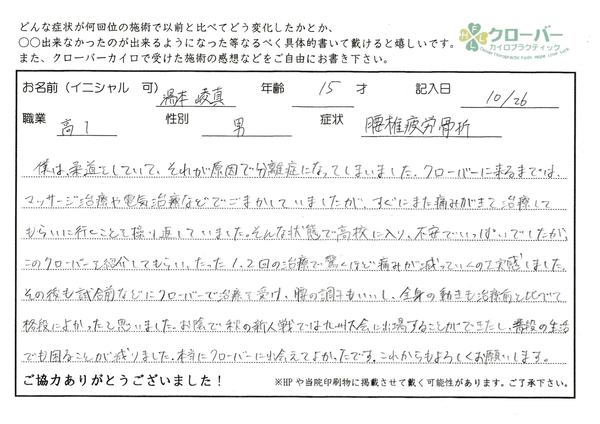 どんな症状が何回位の施術で以前と比べてどう変化したかとか、
○○出来なかったのが出来るようになった等なるべく具体的書いて戴けると嬉しいです。
また、クローバーカイロで受けた施術の感想などをご自由にお書き下さい。
クローバー
カイロプラクティック
お名前（イニシャル 可） 湯本 崚真 年齢 15 才 記入日 10/26
職業 高1 性別 男 症状 腰椎疲労骨折
僕は、柔道をしていて、それが原因で分離症になってしまいました。クローバーに来るまでは、
マッサージ治療や電気治療などでごまかしていましたが、すぐにまた痛みがきて治療して
もらいに行くことを繰り返していました。そんな状態で高校に入り、不安でいっぱいでしたが、
このクローバーを紹介してもらい、たった1、2回の治療で驚くほど痛みが減っていくのを実感しました。
その後も試合前などにクローバーで治療を受け、腰の調子もいいし、全身の動きも治療前と比べて
格段によかったと思いました。お陰で秋の新人戦では九州大会に出場することができたし、普段の生活
でも困ることが減りました。本当にクローバーに出会えてよかったです。これからもよろしくお願いします。
ご協力ありがとうございました！ ※HPや当院印刷物に掲載させて戴く可能性があります。ご了承下さい。